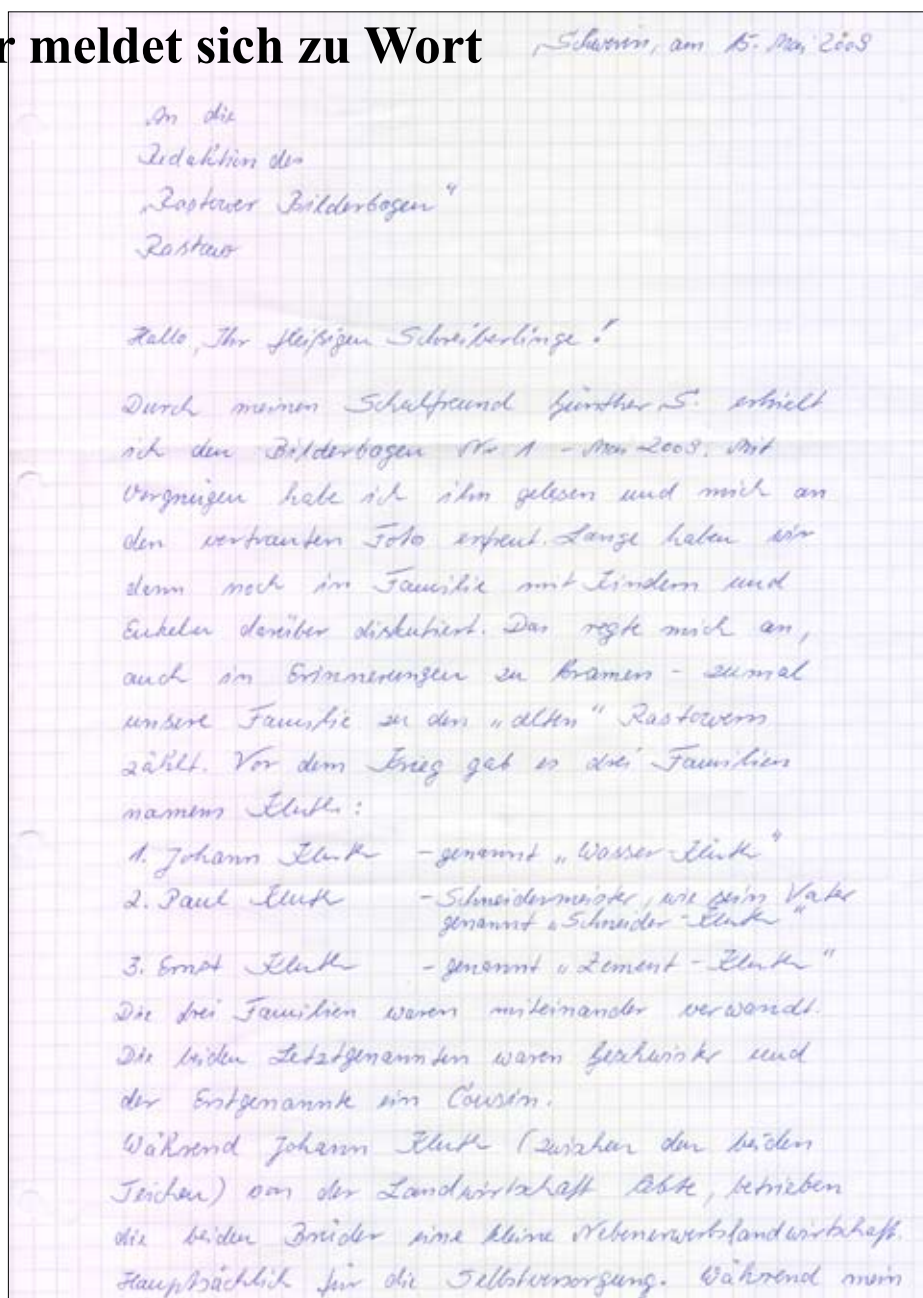 r meldet sich zu Wort
Schwerin, am 15. Mai 2009
An die
Redaktion des
„Rastower Bilderbogen"
Rastow
Hallo, Ihr fleißigen Schreiberlinge!
Durch meinen Schulfreund Günther S. erhielt
ich den Bilderbogen Nr 1 - Mai 2009. Mit
Vergnügen habe ich ihn gelesen und mich an
den vertrauten Foto erfreut. Lange haben wir
dann noch in Familie mit Kindern und
Enkeln darüber diskutiert. Das regte mich an,
auch in Erinnerungen zu kramen - zumal
unsere Familie zu den „alten" Rastowern
zählt. Vor dem Krieg gab es drei Familien
namens Kluth:
1. Johann Kluth - genannt „Wasser-Kluth"
2. Paul Kluth - Schneidermeister, wie sein Vater
genannt „Schneider-Kluth"
3. Ernst Kluth - genannt „Zement-Kluth"
Die drei Familien waren miteinander verwandt.
Die beiden Letztgenannten waren Geschwister und
der Erstgenannte ein Cousin.
Während Johann Kluth (zwischen den beiden
Teichen) von der Landwirtschaft lebte, betrieben
die beiden Brüder eine kleine Nebenerwerbslandwirtschaft.
Hauptsächlich für die Selbstversorgung. Während mein